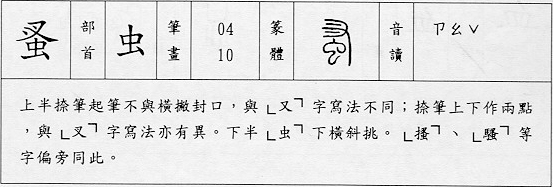 蚤 部首 虫 筆畫 04 10 篆體 音讀 ㄗㄠˇ
上半捺筆起筆不與橫撇封口,與「又」字寫法不同;捺筆上下作兩點
,與「叉」字寫法亦有異。下半「虫」下橫斜挑。「搔」、「騷」等
字偏旁同此。